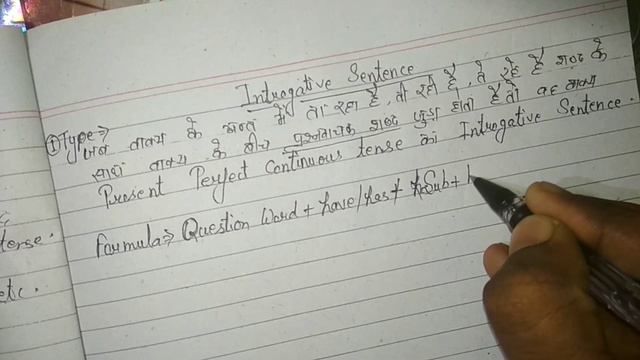 Introgative Sentence
①Type⇒
जब वाक्य के अन्त में ता रहा है, ती रही है, ते रहे है शब्द के
साथ वाक्य के बीच प्रश्नवाचक शब्द जुड़ा होता है तो वह वाक्य
Present Perfect Continuous tense का Introgative Sentence.
formula⇒ Question Word + have/has + Sub +
tense.
etc.